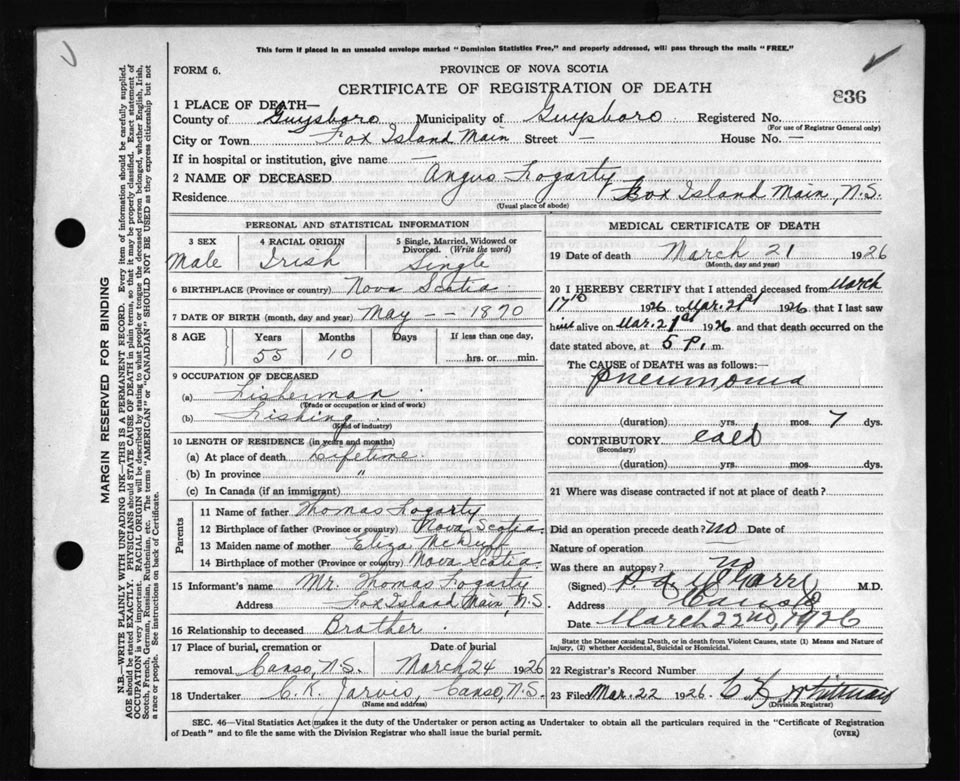 This form if placed in an unsealed envelope marked "Dominion Statistics Free," and properly addressed, will pass through the mails "FREE."
FORM 6.
PROVINCE OF NOVA SCOTIA
CERTIFICATE OF REGISTRATION OF DEATH
836
1 PLACE OF DEATH—
County of Guysboro Municipality of Guysboro Registered No.
(For use of Registrar General only)
City or Town Fox Island Main Street — House No. —
If in hospital or institution, give name —
2 NAME OF DECEASED Angus Fogarty
Residence Fox Island Main, N.S.
(Usual place of abode)
PERSONAL AND STATISTICAL INFORMATION
3 SEX Male
4 RACIAL ORIGIN Irish
5 Single, Married, Widowed or Divorced. (Write the word) Single
6 BIRTHPLACE (Province or country) Nova Scotia
7 DATE OF BIRTH (month, day and year) May — — 1870
8 AGE Years Months Days If less than one day,
55 10 hrs. or min.
9 OCCUPATION OF DECEASED
(a) Fisherman
(Trade or occupation or kind of work)
(b) Fishing
(Kind of industry)
10 LENGTH OF RESIDENCE (in years and months)
(a) At place of death Lifetime
(b) In province "
(c) In Canada (if an immigrant)
Parents
11 Name of father Thomas Fogarty
12 Birthplace of father (Province or country) Nova Scotia
13 Maiden name of mother Eliza McDuff
14 Birthplace of mother (Province or country) Nova Scotia
15 Informant's name Mr. Thomas Fogarty
Address Fox Island Main, N.S.
16 Relationship to deceased Brother
17 Place of burial, cremation or removal Canso, N.S.
Date of burial March 24 1926
18 Undertaker C. R. Jarvis, Canso, N.S.
(Name and address)
MEDICAL CERTIFICATE OF DEATH
19 Date of death March 21 1926
(Month, day and year)
20 I HEREBY CERTIFY that I attended deceased from March
17th 1926 to Mar. 21st 1926 that I last saw
him alive on Mar. 21st 1926 and that death occurred on the
date stated above, at 5 P. m.
The CAUSE OF DEATH was as follows:
Pneumonia
(duration) yrs. mos. 7 dys.
CONTRIBUTORY cold
(Secondary)
(duration) yrs. mos. dys.
21 Where was disease contracted if not at place of death?
Did an operation precede death? no Date of
Nature of operation
Was there an autopsy? no
(Signed) M.D.
Address Canso
Date March 22nd, 1926
State the Disease causing Death, or in death from Violent Causes, state (1) Means and Nature of
Injury, (2) whether Accidental, Suicidal or Homicidal.
22 Registrar's Record Number
23 Filed Mar. 22 1926.
(Division Registrar)
SEC. 46—Vital Statistics Act makes it the duty of the Undertaker or person acting as Undertaker to obtain all the particulars required in the "Certificate of Registration
of Death" and to file the same with the Division Registrar who shall issue the burial permit.
(OVER)
MARGIN RESERVED FOR BINDING
N.B.—WRITE PLAINLY WITH UNFADING INK—THIS IS A PERMANENT RECORD. Every item of information should be carefully supplied.
AGE should be stated EXACTLY. PHYSICIANS should STATE CAUSE OF DEATH in plain terms, so that it may be properly classified. Exact statement of
OCCUPATION is very important. RACIAL ORIGIN will be described by stating to what people or tongue the deceased person belonged, whether English, Irish,
Scotch, French, German, Russian, Ruthenian, etc. The terms "AMERICAN" or "CANADIAN" SHOULD NOT BE USED as they express citizenship but not
a race or people. See instructions on back of Certificate.